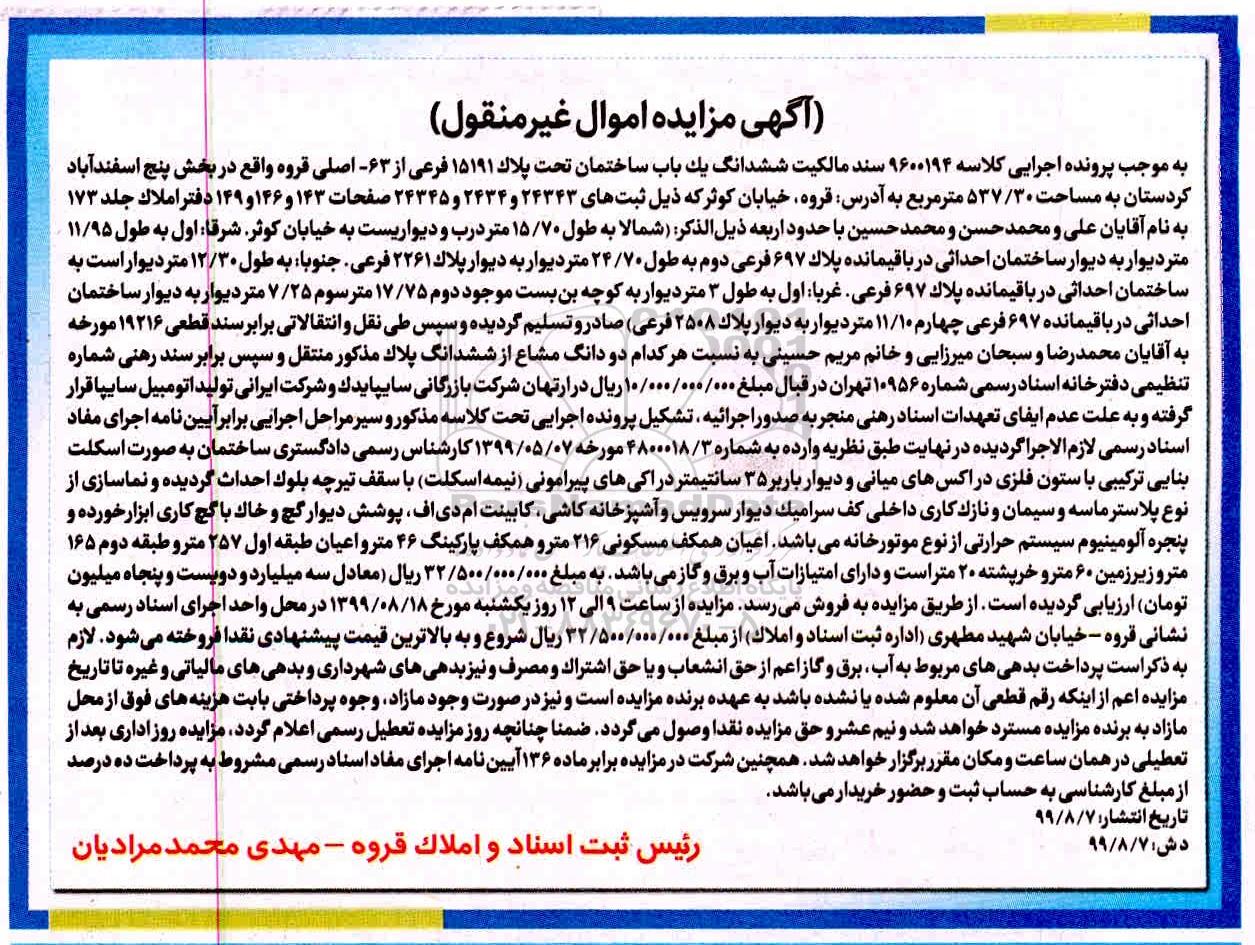 (آگهی مزایده اموال غیرمنقول)
به موجب پرونده اجرایی کلاسه ۹۶۰۰۱۹۴ سند مالکیت ششدانگ یك باب ساختمان تحت پلاك ۱۵۱۹۱ فرعی از ۶۳- اصلی قروه واقع در بخش پنج اسفندآباد
کردستان به مساحت ۵۳۷/۳۰ مترمربع به آدرس: قروه، خیابان کوثر که ذیل ثبت‌های ۲۴۳۴۳ و ۲۴۳۴ و ۲۴۳۴۵ صفحات ۱۴۳ و ۱۴۶ و ۱۴۹ دفتر املاك جلد ۱۷۳
به نام آقایان علی و محمدحسن و محمدحسین با حدود اربعه ذیل‌الذکر: (شمالا به طول ۱۵/۷۰ متر درب و دیواریست به خیابان کوثر. شرقا: اول به طول ۱۱/۹۵
متر دیوار به دیوار ساختمان احداثی در باقیمانده پلاك ۶۹۷ فرعی دوم به طول ۲۴/۷۰ متر دیوار به دیوار پلاك ۲۲۶۱ فرعی. جنوبا: به طول ۱۲/۳۰ متر دیوار است به
ساختمان احداثی در باقیمانده پلاك ۶۹۷ فرعی. غربا: اول به طول ۳ متر دیوار به کوچه بن‌بست موجود دوم ۱۷/۷۵ متر سوم ۷/۲۵ متر دیوار به دیوار ساختمان
احداثی در باقیمانده ۶۹۷ فرعی چهارم ۱۱/۱۰ متر دیوار به دیوار پلاك ۲۵۰۸ فرعی) صادر و تسلیم گردیده و سپس طی نقل و انتقالاتی برابر سند قطعی ۱۹۲۱۶ مورخه
به آقایان محمدرضا و سبحان میرزایی و خانم مریم حسینی به نسبت هر کدام دو دانگ مشاع از ششدانگ پلاك مذکور منتقل و سپس برابر سند رهنی شماره
تنظیمی دفترخانه اسناد رسمی شماره ۱۰۹۵۶ تهران در قبال مبلغ ۱۰/۰۰۰/۰۰۰/۰۰۰ ریال در ارتهان شرکت بازرگانی سایپایدك و شرکت ایرانی تولید اتومبیل سایپا قرار
گرفته و به علت عدم ایفای تعهدات اسناد رهنی منجر به صدور اجرائیه، تشکیل پرونده اجرایی تحت کلاسه مذکور و سیر مراحل اجرایی برابر آیین‌نامه اجرای مفاد
اسناد رسمی لازم‌الاجرا گردیده در نهایت طبق نظریه وارده به شماره ۴۸۰۰۰۱۸/۳ مورخه ۱۳۹۹/۰۵/۰۷ کارشناس رسمی دادگستری ساختمان به صورت اسکلت
بنایی ترکیبی با ستون فلزی در اکس‌های میانی و دیوار باربر ۳۵ سانتیمتر در اکی‌های پیرامونی (نیمه اسکلت) با سقف تیرچه بلوك احداث گردیده و نماسازی از
نوع پلاستر ماسه و سیمان و نازك کاری داخلی کف سرامیك دیوار سرویس و آشپزخانه کاشی، کابینت ام‌دی‌اف، پوشش دیوار گچ و خاك با گچ کاری ابزار خورده و
پنجره آلومینیوم سیستم حرارتی از نوع موتورخانه می‌باشد. اعیان همکف مسکونی ۲۱۶ متر و همکف پارکینگ ۴۶ متر و اعیان طبقه اول ۲۵۷ متر و طبقه دوم ۱۶۵
متر و زیرزمین ۶۰ متر و خرپشته ۲۰ متر است و دارای امتیازات آب و برق و گاز می‌باشد. به مبلغ ۳۲/۵۰۰/۰۰۰/۰۰۰ ریال (معادل سه میلیارد و دویست و پنجاه میلیون
تومان) ارزیابی گردیده است. از طریق مزایده به فروش می‌رسد. مزایده از ساعت ۹ الی ۱۲ روز یکشنبه مورخ ۱۳۹۹/۰۸/۱۸ در محل واحد اجرای اسناد رسمی به
نشانی قروه – خیابان شهید مطهری (اداره ثبت اسناد و املاك) از مبلغ ۳۲/۵۰۰/۰۰۰/۰۰۰ ریال شروع و به بالاترین قیمت پیشنهادی نقدا فروخته می‌شود. لازم
به ذکر است پرداخت بدهی‌های مربوط به آب، برق و گاز اعم از حق انشعاب و یا حق اشتراك و مصرف و نیز بدهی‌های شهرداری و بدهی‌های مالیاتی و غیره تا تاریخ
مزایده اعم از اینکه رقم قطعی آن معلوم شده یا نشده باشد به عهده برنده مزایده است و نیز در صورت وجود مازاد، وجوه پرداختی بابت هزینه‌های فوق از محل
مازاد به برنده مزایده مسترد خواهد شد و نیم عشر و حق مزایده نقدا وصول می‌گردد. ضمنا چنانچه روز مزایده تعطیل رسمی اعلام گردد، مزایده روز اداری بعد از
تعطیلی در همان ساعت و مکان مقرر برگزار خواهد شد. همچنین شرکت در مزایده برابر ماده ۱۳۶ آیین‌نامه اجرای مفاد اسناد رسمی مشروط به پرداخت ده درصد
از مبلغ کارشناسی به حساب ثبت و حضور خریدار می‌باشد.
تاریخ انتشار: ۹۹/۸/۷
د ش: ۹۹/۸/۷
رئیس ثبت اسناد و املاك قروه – مهدی محمدمرادیان
ParsNamadData
پایگاه اطلاع رسانی مناقصه و مزایده
۰۲۱-۸۸۳۴۹۶۷۰-۵